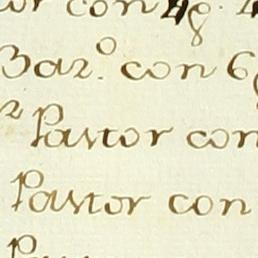 or con 48. 4
Bar.º con 6
r Pastor con
Pastor con
P